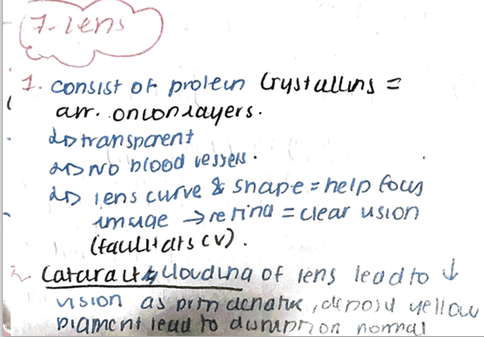 7-lens
1. consist of protein Crystallins =
arr. onion layers.
↳ transparent
↳ No blood vessels.
↳ lens curve & shape = help focus
image → retina = clear usion
(facilitats CV).
2. Cataract ↳ clouding of lens lead to ↓
vision as prtn denatre, deposit yellow
piament lead to normal